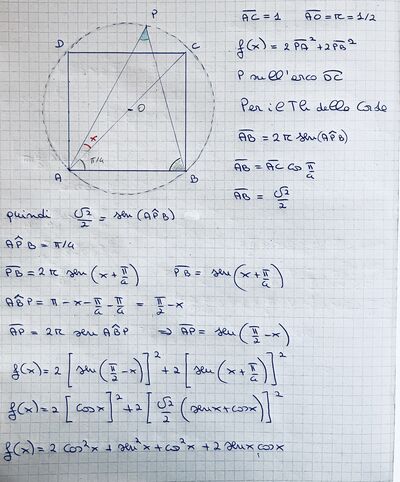 P
D
C
O
x
π/4
A
B
AC = 1    AO = r = 1/2
f(x) = 2 PA² + 2 PB²
P sull'arco DC
Per il Th della Corda
AB = 2r sen(APB)
AB = AC cos π/4
AB = √2/2
quindi √2/2 = sen(APB)
APB = π/4
PB = 2r sen(x + π/4)    PB = sen(x + π/4)
ABP = π - x - π/4 - π/4 = π/2 - x
AP = 2r sen ABP ⇒ AP = sen(π/2 - x)
f(x) = 2 [sen(π/2 - x)]² + 2 [sen(x + π/4)]²
f(x) = 2 [cos x]² + 2 [√2/2 (sen x + cos x)]²
f(x) = 2 cos²x + sen²x + cos²x + 2 sen x cos x